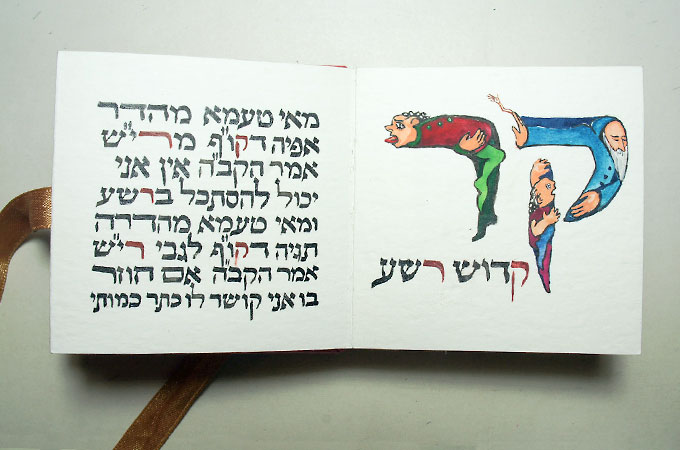 ק ר
קדוש רשע
מאי טעמא מהדר
אפיה דקו"ף מרי"ש
אמר הקב"ה אין אני
יכול להסתכל ברשע
ומאי טעמא מהדרה
תגיה דקו"ף לגבי רי"ש
אמר הקב"ה אם חוזר
בו אני קושר לו כתר כמותי